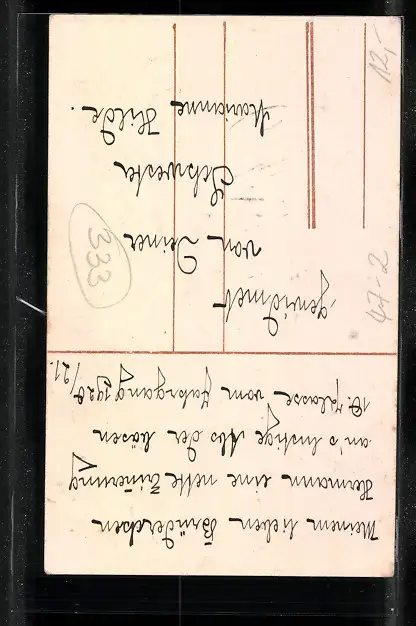 Meinem lieben Brüderchen
Hermann eine nette Erinerung
an's lustige der bösen
10. Klasse vom Jahrgang 1920
/21.
gewidmet
von Deiner
Schwester
Marianne Hilde.
333
47-2
12,-